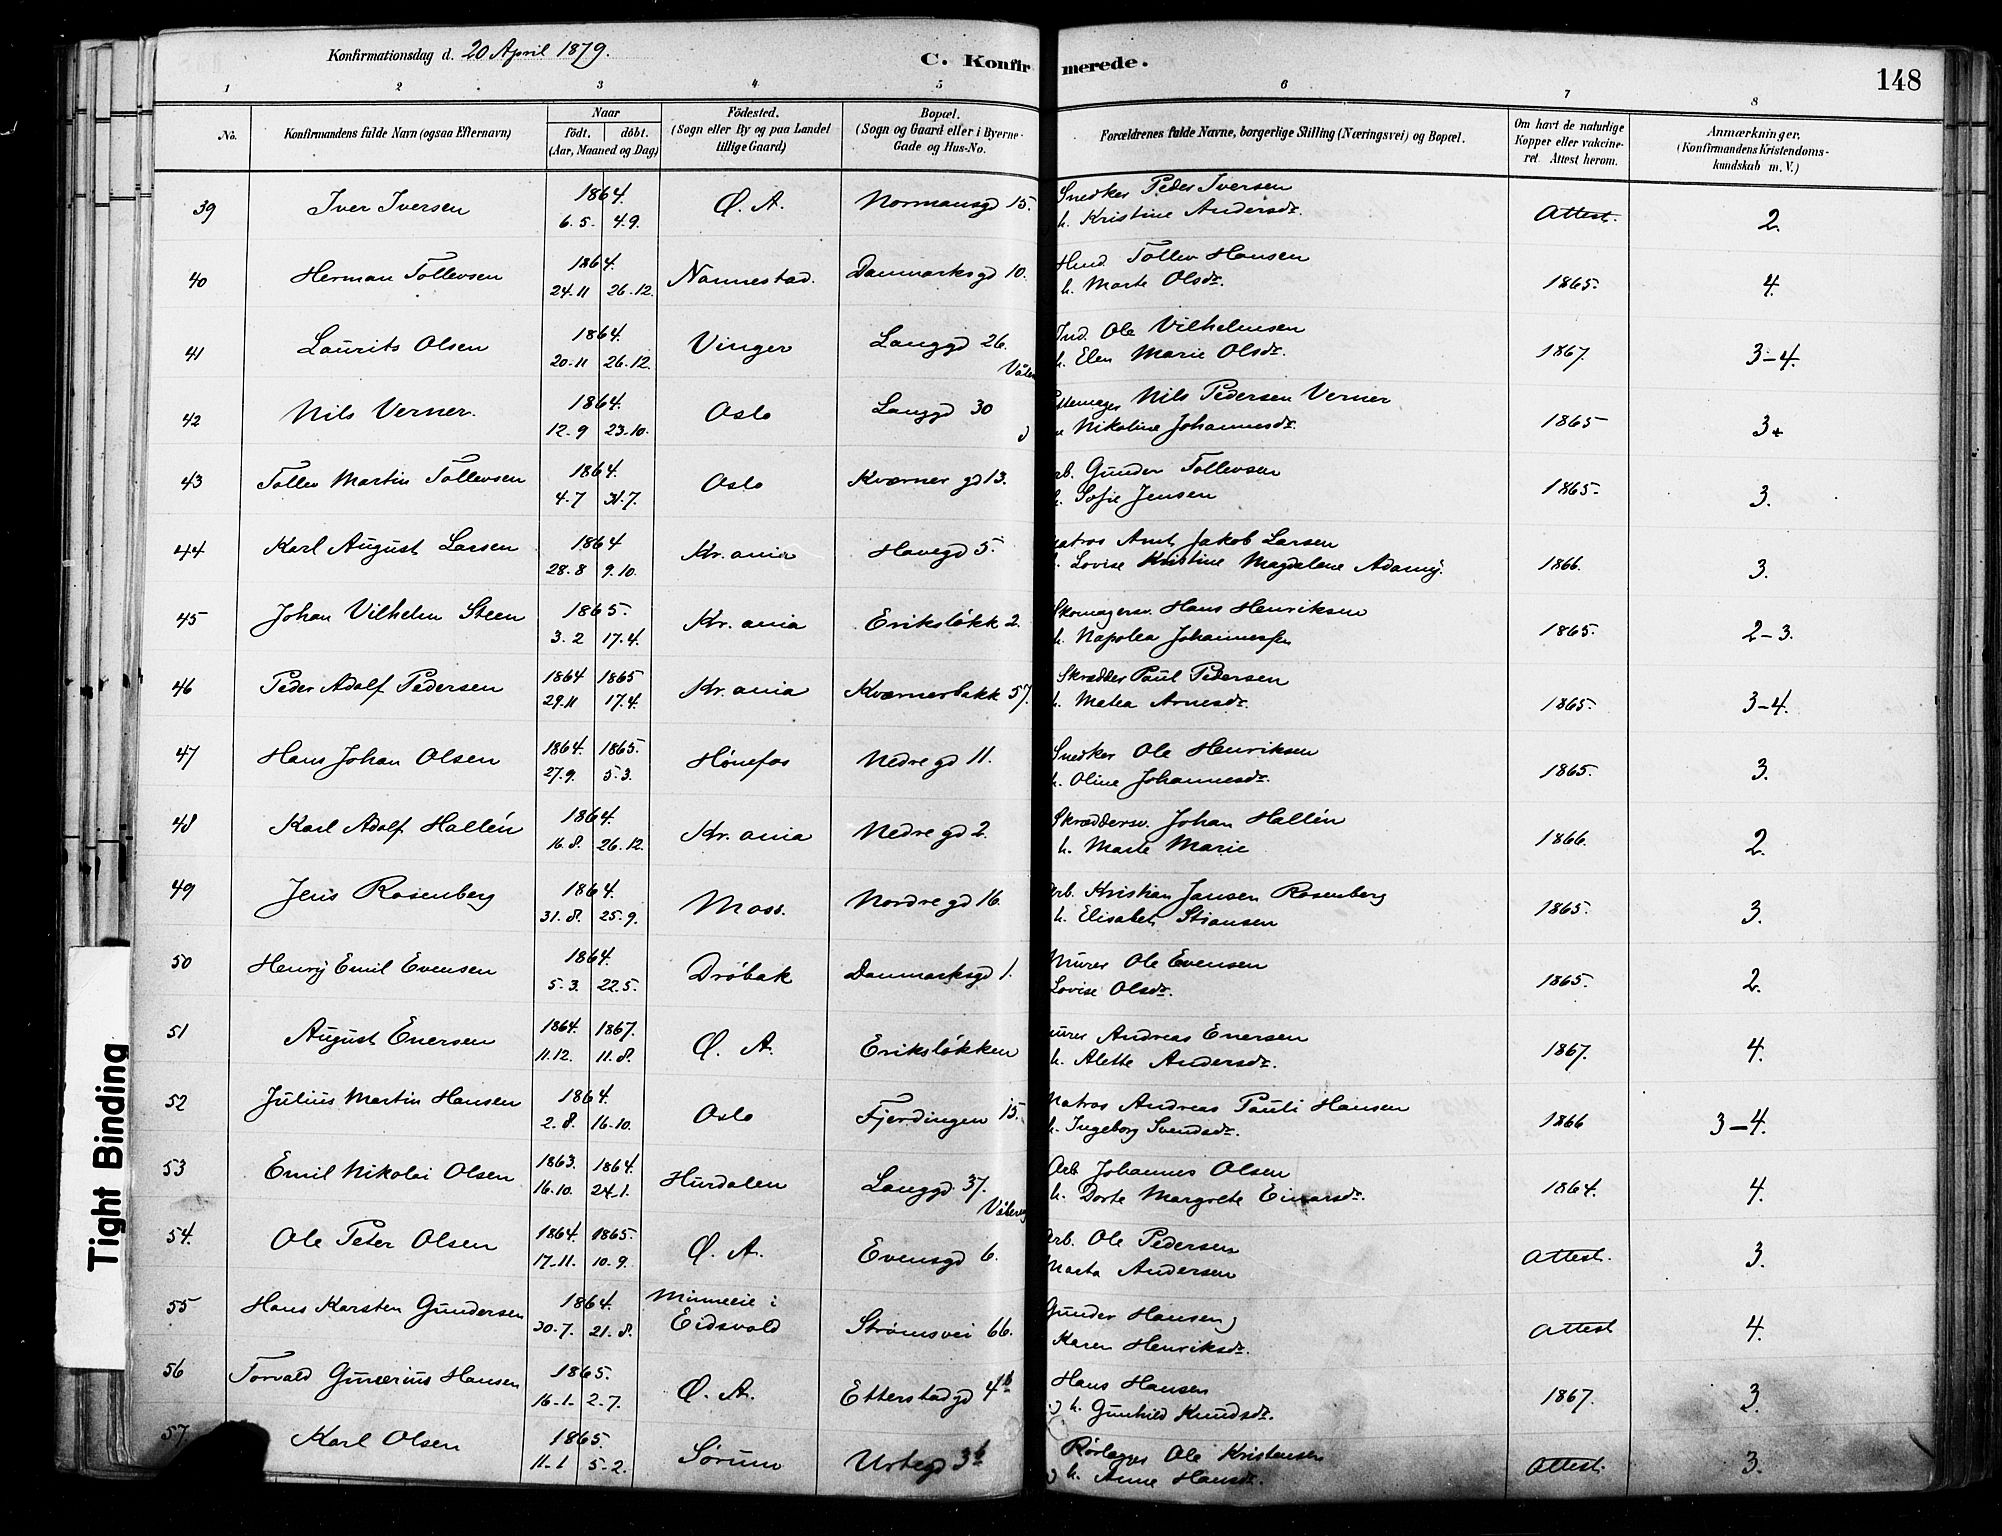 Konfirmationsdag d. 20 April 1879.
C. Konfirmerede.
148
1 2 3 4 5 6 7 8
No.
Konfirmandens fulde Navn (ogsaa Efternavn)
Naar
Født. døbt.
(Aar, Maaned og Dag)
Fødested.
(Sogn eller By og paa Landet tillige Gaard)
Bopæl.
(Sogn og Gaard eller i Byerne Gade og Hus-No.
Forældrenes fulde Navne, borgerlige Stilling (Næringsvei) og Bopæl.
Om havt de naturlige Kopper eller vakcineret. Attest herom.
Anmærkninger.
(Konfirmandens Kristendomskundskab m. V.)
39 Iver Iversen 1864. 6.5. 4.9. Ø. A. Normansgd 15. Snedker Peder Iversen
h. Kristine Andersdr. Attest. 2.
40 Herman Tollevsen 1864. 24.11 26.12. Nannestad. Danmarksgd 10. Tollev Hansen
h. Marte Olsdr. 1865. 4.
41 Laurits Olsen 1864. 20.11 26.12. Vinger Langgd 26. Ind. Ole Vilhelmsen
h. Elen Marie Olsdr. 1867. 3-4.
42 Nils Verner. 1864. 12.9 23.10. Oslo Langgd 30 Nils Pedersen Verner
Nikoline Johannesdr. 1865 3+
43 Tollev Martin Tollevsen 1864. 4.7 31.7. Oslo Kværnergd 13. Gunder Tollevsen
h. Sofie Jensen 1865. 3.
44 Karl August Larsen 1864 28.8 9.10. Kr.ania Havegd 5. Jakob Larsen
Lovise Kristine Magdalene 1866. 3.
45 Johan Vilhelm Steen 1865. 3.2 17.4. Kr.ania Eriksløkk 2. Skomagersv. Hans Henriksen
h. Napolea 1865. 2-3.
46 Peder Adolf Pedersen 1864 1865 29.11 17.4. Kr.ania Kværnerbakk 57. Skrædder Paul Pedersen
h. Matea Arnesdr. 1865. 3-4.
47 Hans Johan Olsen 1864. 1865. 27.9. 5.3. Hønefos Nedregd 11. Snedker Ole Henriksen
h. Oline Johannesdr. 1865. 3.
48 Karl Adolf Hallén 1864. 16.8. 26.12. Kr.ania Nedregd 2. Skræddersv. Johan Hallén
h. Marte Marie 1866. 2.
49 Jens Rosenberg 1864. 31.8. 25.9. Moss. Nordregd 16. Arb. Kristian Jansen Rosenberg
h. Elisabet Stiansen 1865. 3.
50 Henry Emil Evensen 1864. 5.3. 22.5. Drøbak Danmarksgd 1. Murer Ole Evensen
Lovise Olsdr. 1865. 2.
51 August Enersen 1864. 1867. 11.12. 11.8. Ø. A. Eriksløkken Andreas Enersen
h. Alette Andersdr. 1867. 4.
52 Julius Martin Hansen 1864. 2.8. 16.10. Oslo Fjerdingen 15. Matros Andreas Pauli Hansen
h. Ingeborg Svendsdr. 1866 3-4.
53 Emil Nikolai Olsen 1863. 1864. 16.10. 24.1. Hurdalen Langgd 37. Arb Johannes Olsen
h. Dorte Margrete Einarsdr. 1864. 4.
54. Ole Peter Olsen 1864. 1865. 17.11. 10.9. Ø. A. Evensgd 6. Arb. Ole Pedersen
Marta Andersen Attest. 3.
55 Hans Karsten Gundersen 1864. 30.7. 21.8. Minneeie i
Eidsvold Strømsvei 66. Gunder Hansen
Karen Henriksdr. Attest 4.
56 Torvald Gunerius Hansen 1865. 16.1. 2.7. Ø. A. Etterstadgd 4b Hans Hansen
h. Gunhild Knudsdr. 1867. 3.
57. Karl Olsen 1865. 11.1 5.2. Sørum Urtegd 3b Rørlægger Ole Kristensen
h. Anne Hansdr. Attest. 3.
Tight Binding